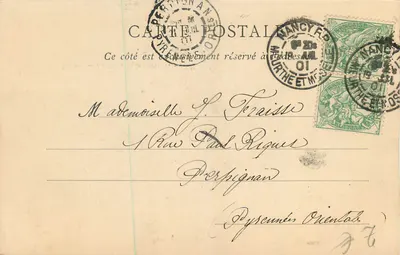 CARTE POSTALE
Ce côté est exclusivement réservé à l'adresse
PERPIGNAN
PYRÉNÉES
NANCY R.P.
19 JUIL
01
MEURTHE ET MOSELLE
NANCY
01
MEURTHE ET MOSELLE
Mademoiselle J. Fraisse
1 Rue Paul Riques
Perpignan
Pyrennées Orientales